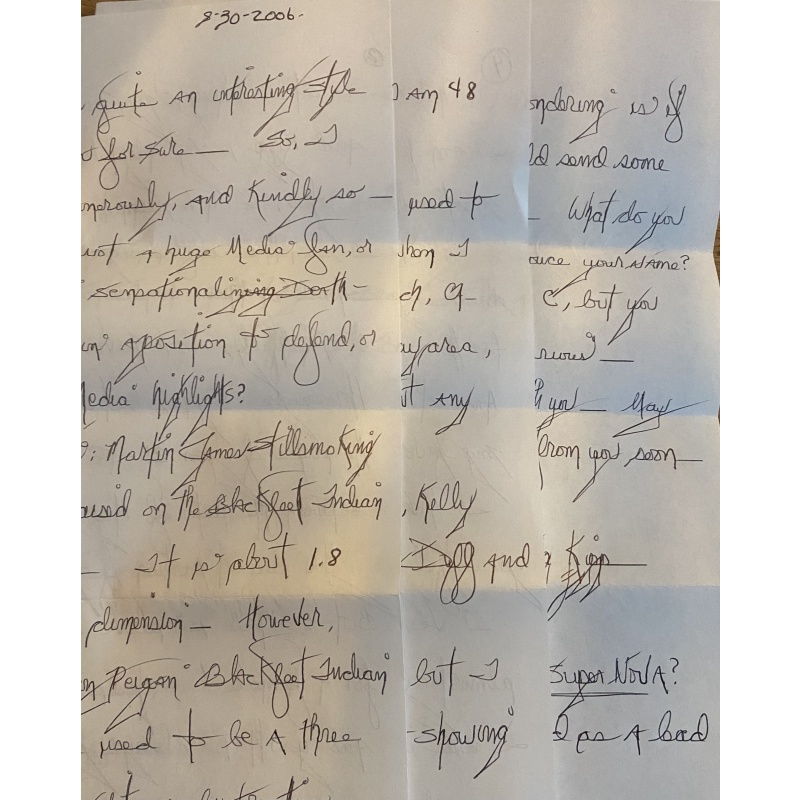 8-30-2006.
quite an interesting style I am 48 ondering is if
for sure — So, I ld send some
nerously, and kindly so — used to — What do you
not a huge Media fan, or when I ounce your name?
sensationalining Death — ch, C, but you
a position to defend, or ay area,
edia highlights? ut any you — May
: Martin James Stillsmoking from you soon —
used on the Blackfeet Indian, Kelly
— It is about 1.8 Dogg and a Kipp —
dimension — However,
n Peigan Blackfeet Indian but I Super NovA?
used to be A three -showing as A bad